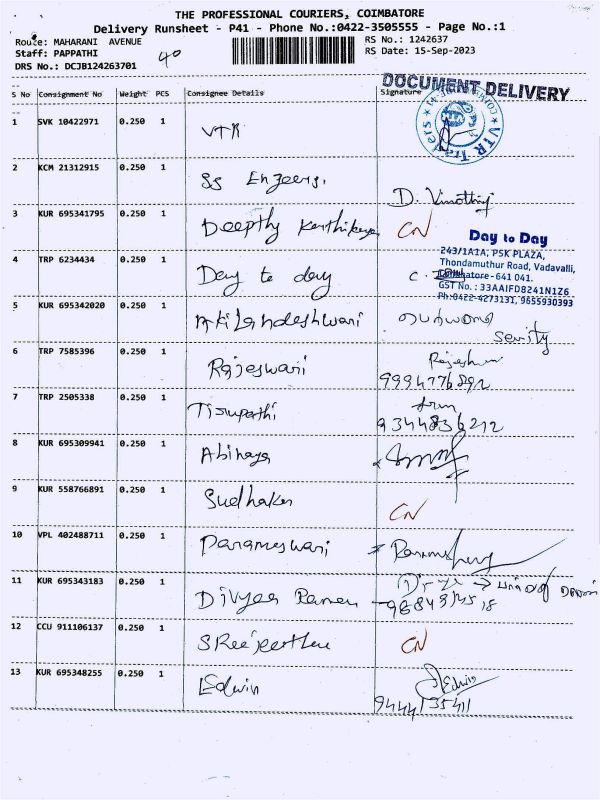 THE PROFESSIONAL COURIERS, COIMBATORE
Delivery Runsheet - P41 - Phone No.:0422-3505555 - Page No.:1
Route: MAHARANI AVENUE
RS No.: 1242637
Staff: PAPPATHI
40
RS Date: 15-Sep-2023
DRS No.: DCJB124263701
DOCUMENT DELIVERY
S No Consignment No Weight PCS Consignee Details Signature
1 SVK 10422971 0.250 1 VTR
VTR Traders
2 KCM 21312915 0.250 1 SS Engeers.
D. Vinothiy
3 KUR 695341795 0.250 1 Deepthy Karthikeya CN
Day to Day
243/1A1A, PSK PLAZA,
Thondamuthur Road, Vadavalli,
Coimbatore - 641 041.
GST No. : 33AAIFD8241N1Z6
Ph:0422-4273131, 9655930393
4 TRP 6234434 0.250 1 Day to day
5 KUR 695342020 0.250 1 Akilandeshwari
Serity
6 TRP 7585396 0.250 1 Rajeswari
9994776892
7 TRP 2505338 0.250 1 Tirupathi
9344836212
8 KUR 695309941 0.250 1 Abinaya
9 KUR 558766891 0.250 1 Sudhakar CN
10 VPL 402488711 0.250 1 Parameswari
11 KUR 695343183 0.250 1 Divyaa Raman
12 CCU 911106137 0.250 1 SReejeethu CN
13 KUR 695348255 0.250 1 Edwin Edwin
9444135411